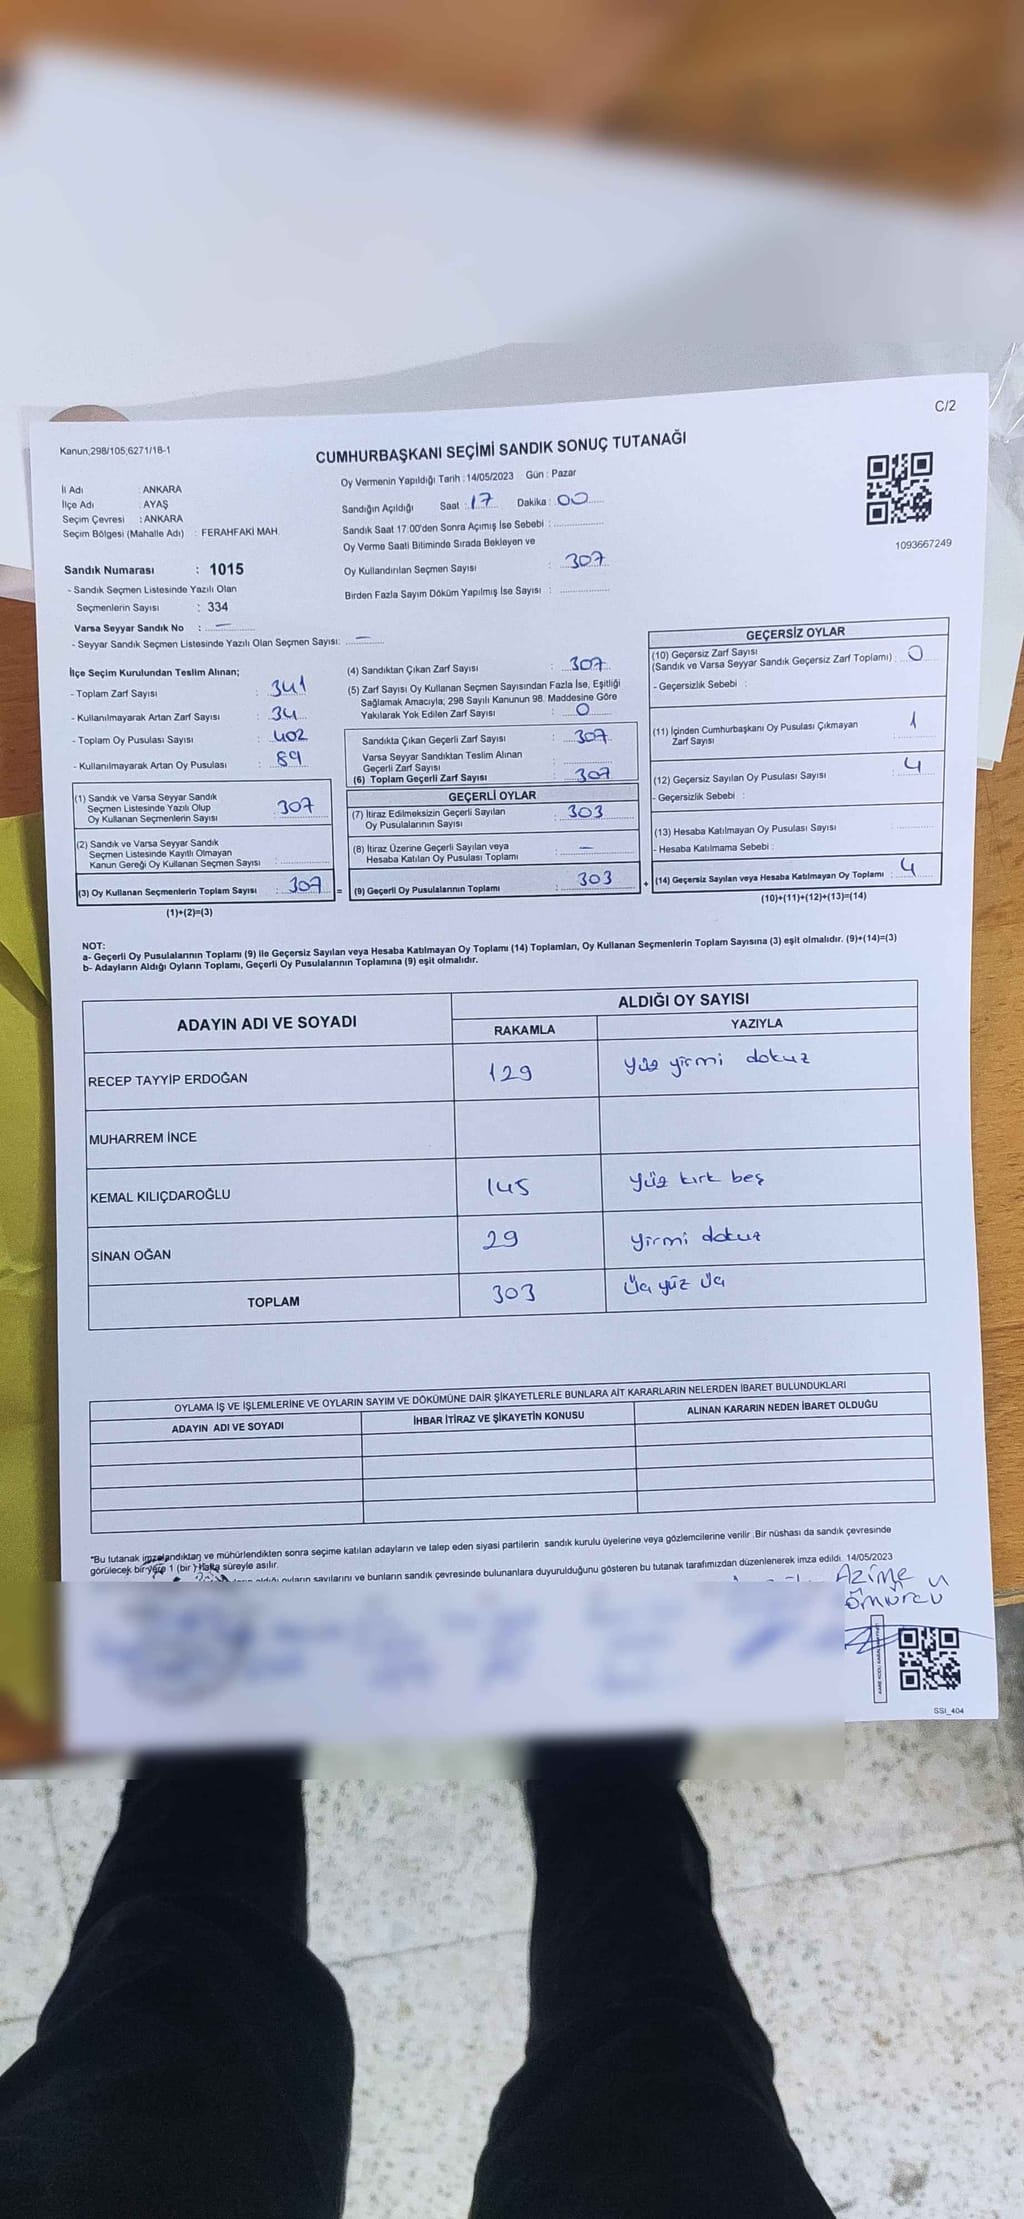 C/2
Kanun;298/105;6271/18-1
CUMHURBAŞKANI SEÇİMİ SANDIK SONUÇ TUTANAĞI
İl Adı : ANKARA
İlçe Adı : AYAŞ
Seçim Çevresi : ANKARA
Seçim Bölgesi (Mahalle Adı) : FERAHFAKİ MAH.
Oy Vermenin Yapıldığı Tarih : 14/05/2023 Gün : Pazar
Sandığın Açıldığı Saat : 17 Dakika : 00
Sandık Saat 17:00'den Sonra Açımış İse Sebebi :
Oy Verme Saati Bitiminde Sırada Bekleyen ve
Oy Kullandırılan Seçmen Sayısı : 307
Birden Fazla Sayım Döküm Yapılmış İse Sayısı :
1093667249
Sandık Numarası : 1015
- Sandık Seçmen Listesinde Yazılı Olan
Seçmenlerin Sayısı : 334
Varsa Seyyar Sandık No : –
- Seyyar Sandık Seçmen Listesinde Yazılı Olan Seçmen Sayısı: –
İlçe Seçim Kurulundan Teslim Alınan;
- Toplam Zarf Sayısı : 341
- Kullanılmayarak Artan Zarf Sayısı : 34
- Toplam Oy Pusulası Sayısı : 402
- Kullanılmayarak Artan Oy Pusulası : 89
(1) Sandık ve Varsa Seyyar Sandık
Seçmen Listesinde Yazılı Olup
Oy Kullanan Seçmenlerin Sayısı : 307
(2) Sandık ve Varsa Seyyar Sandık
Seçmen Listesinde Kayıtlı Olmayan
Kanun Gereği Oy Kullanan Seçmen Sayısı :
(3) Oy Kullanan Seçmenlerin Toplam Sayısı : 307 =
(1)+(2)=(3)
(4) Sandıktan Çıkan Zarf Sayısı : 307
(5) Zarf Sayısı Oy Kullanan Seçmen Sayısından Fazla İse, Eşitliği
Sağlamak Amacıyla; 298 Sayılı Kanunun 98. Maddesine Göre
Yakılarak Yok Edilen Zarf Sayısı : 0
Sandıkta Çıkan Geçerli Zarf Sayısı : 307
Varsa Seyyar Sandıktan Teslim Alınan
Geçerli Zarf Sayısı :
(6) Toplam Geçerli Zarf Sayısı : 307
GEÇERLİ OYLAR
(7) İtiraz Edilmeksizin Geçerli Sayılan
Oy Pusulalarının Sayısı : 303
(8) İtiraz Üzerine Geçerli Sayılan veya
Hesaba Katılan Oy Pusulası Toplamı : –
(9) Geçerli Oy Pusulalarının Toplamı : 303 +
GEÇERSİZ OYLAR
(10) Geçersiz Zarf Sayısı
(Sandık ve Varsa Seyyar Sandık Geçersiz Zarf Toplamı) : 0
- Geçersizlik Sebebi :
(11) İçinden Cumhurbaşkanı Oy Pusulası Çıkmayan
Zarf Sayısı : 1
(12) Geçersiz Sayılan Oy Pusulası Sayısı : 4
- Geçersizlik Sebebi :
(13) Hesaba Katılmayan Oy Pusulası Sayısı :
- Hesaba Katılmama Sebebi :
(14) Geçersiz Sayılan veya Hesaba Katılmayan Oy Toplamı : 4
(10)+(11)+(12)+(13)=(14)
NOT:
a- Geçerli Oy Pusulalarının Toplamı (9) ile Geçersiz Sayılan veya Hesaba Katılmayan Oy Toplamı (14) Toplamları, Oy Kullanan Seçmenlerin Toplam Sayısına (3) eşit olmalıdır. (9)+(14)=(3)
b- Adayların Aldığı Oyların Toplamı, Geçerli Oy Pusulalarının Toplamına (9) eşit olmalıdır.
ADAYIN ADI VE SOYADI ALDIĞI OY SAYISI
RAKAMLA YAZIYLA
RECEP TAYYİP ERDOĞAN 129 Yüz yirmi dokuz
MUHARREM İNCE
KEMAL KILIÇDAROĞLU 145 Yüz kırk beş
SİNAN OĞAN 29 Yirmi dokuz
TOPLAM 303 Üç yüz üç
OYLAMA İŞ VE İŞLEMLERİNE VE OYLARIN SAYIM VE DÖKÜMÜNE DAİR ŞİKAYETLERLE BUNLARA AİT KARARLARIN NELERDEN İBARET BULUNDUKLARI
ADAYIN ADI VE SOYADI İHBAR İTİRAZ VE ŞİKAYETİN KONUSU ALINAN KARARIN NEDEN İBARET OLDUĞU
*Bu tutanak imzalandıktan ve mühürlendikten sonra seçime katılan adayların ve talep eden siyasi partilerin sandık kurulu üyelerine veya gözlemcilerine verilir. Bir nüshası da sandık çevresinde
görülecek bir yere 1 (bir) Hafta süreyle asılır.
oyların sayılarını ve bunların sandık çevresinde bulunanlara duyurulduğunu gösteren bu tutanak tarafımızdan düzenlenerek imza edildi. 14/05/2023
Azime
Ömürcü
SSI_404